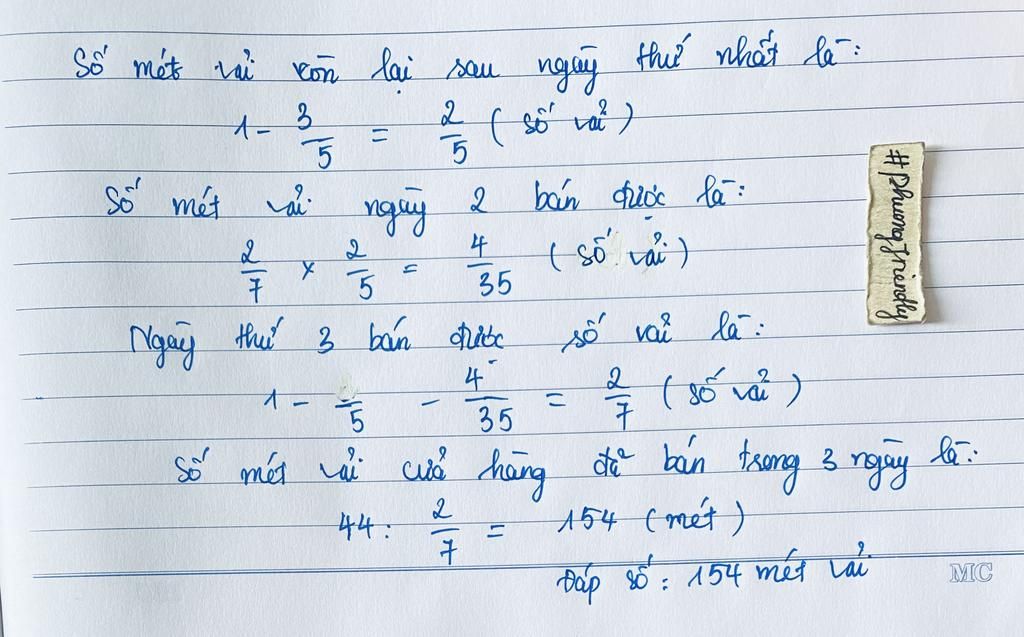 Số mét vải còn lại sau ngày thứ nhất là:
1 - 3/5 = 2/5 ( số vải )
Số mét vải ngày 2 bán được là:
2/7 x 2/5 = 4/35 ( số vải )
Ngày thứ 3 bán được số vải là:
1 - /5 - 4/35 = 2/7 ( số vải )
Số mét vải cửa hàng đã bán trong 3 ngày là:
44 : 2/7 = 154 ( mét )
Đáp số : 154 mét vải
#PhuongFriendly
MC